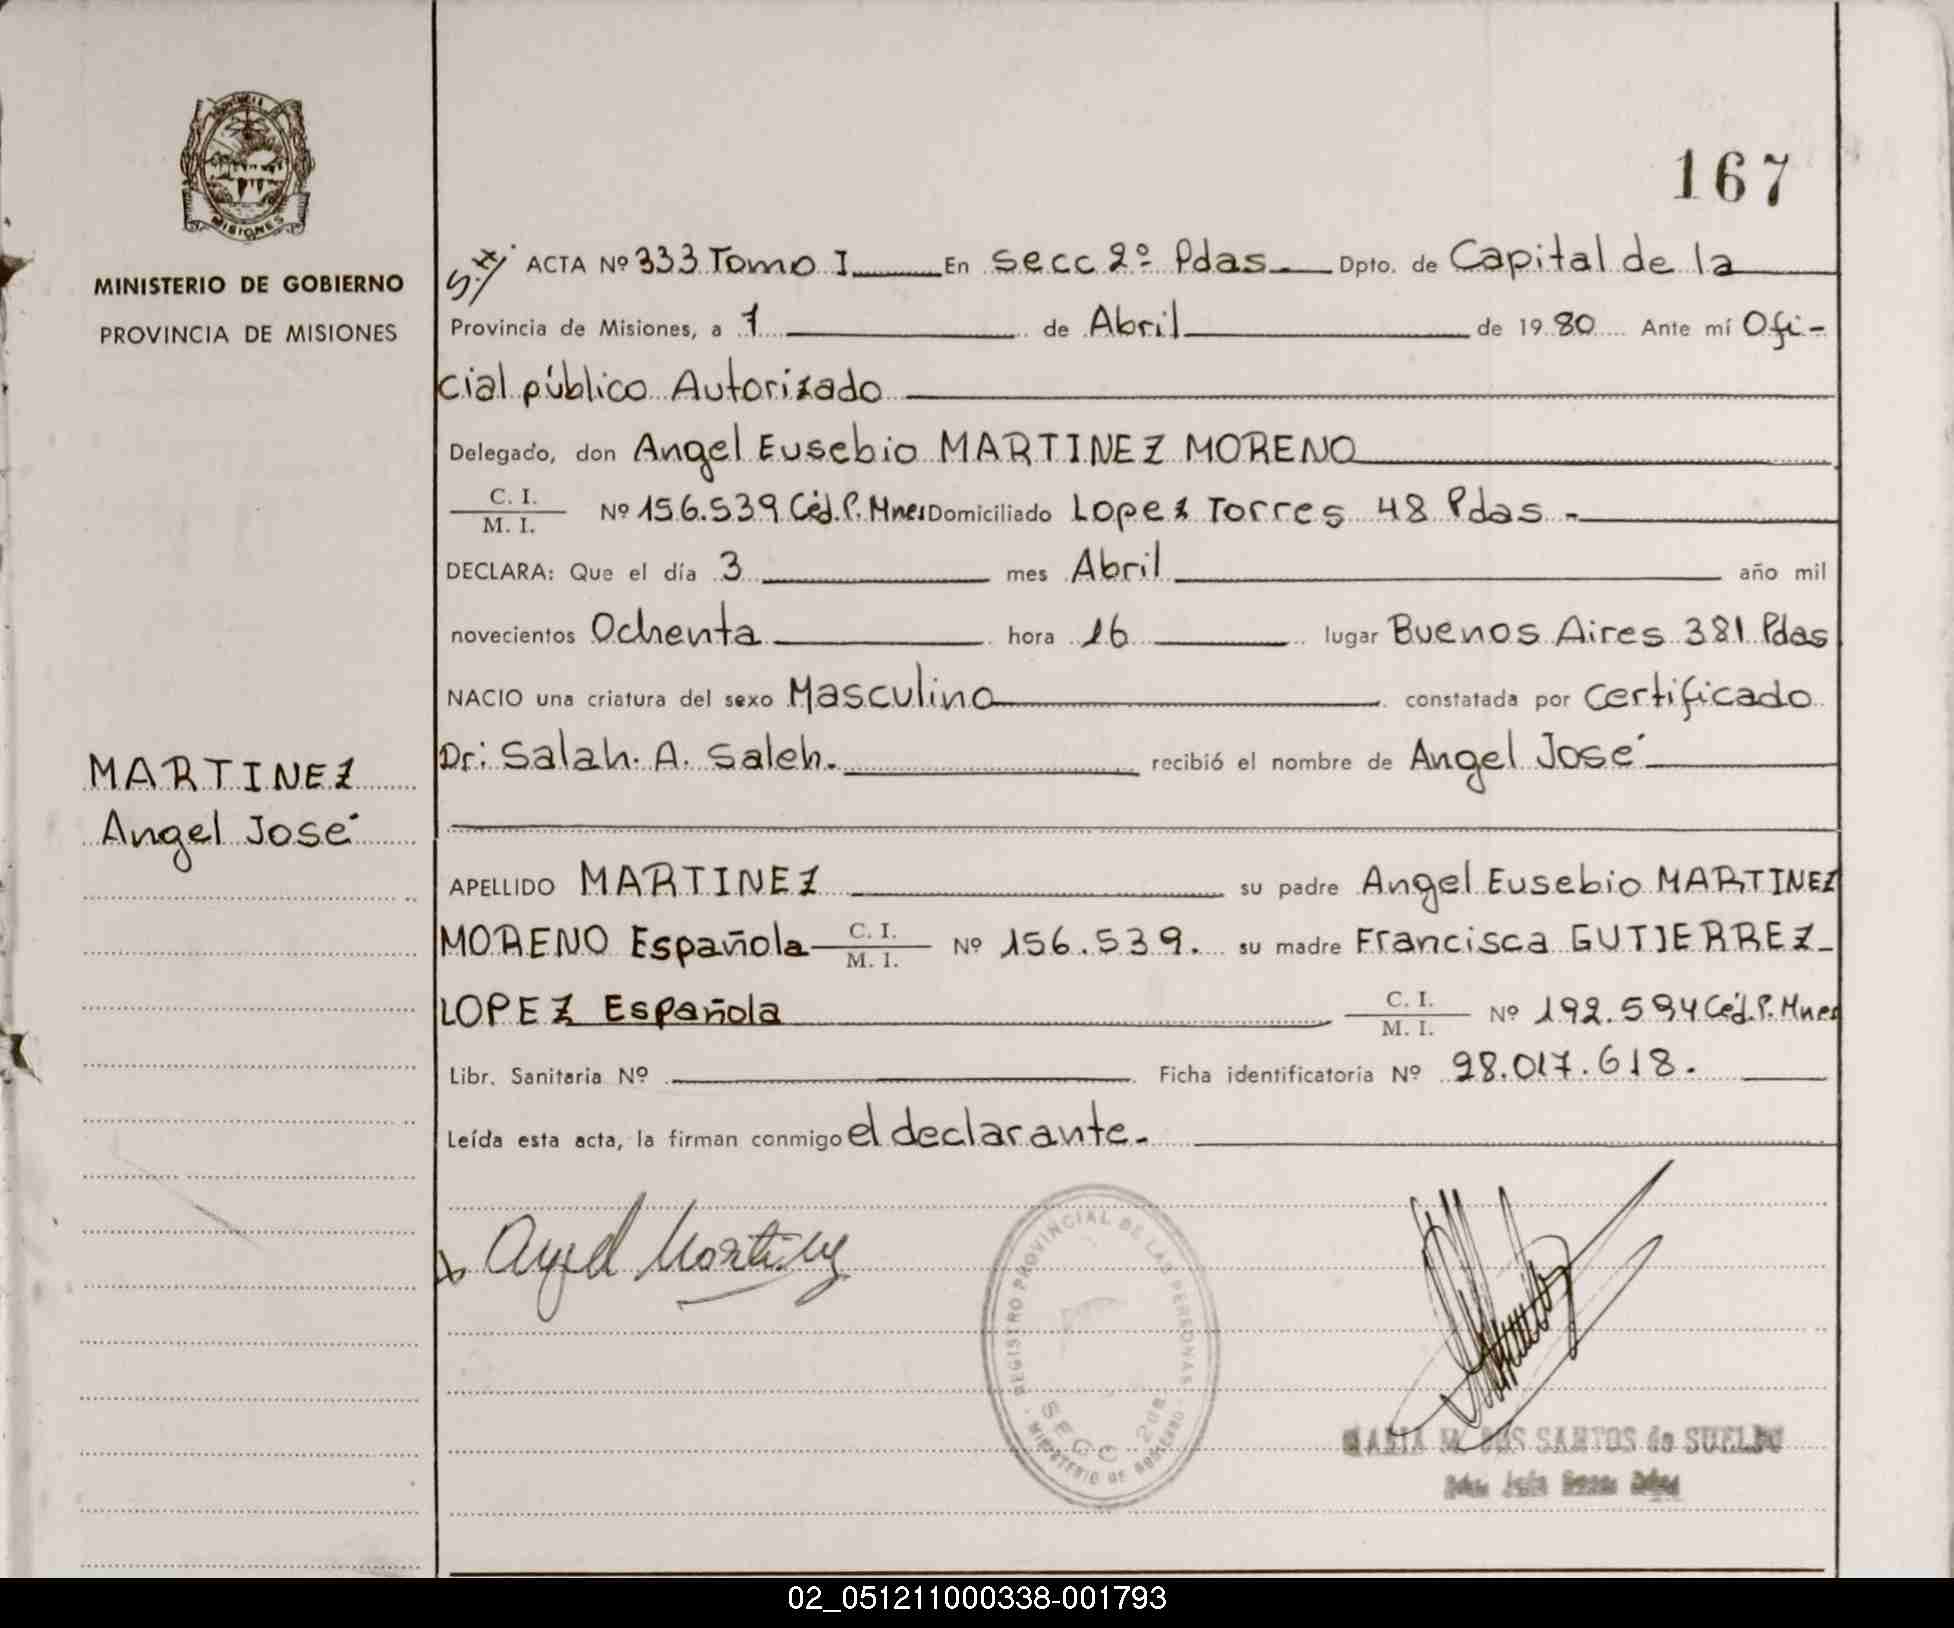 PROVINCIA
MISIONES
MINISTERIO DE GOBIERNO
PROVINCIA DE MISIONES
167
ACTA Nº 333 Tomo I En secc 2º Pdas. Dpto. de Capital de la
Provincia de Misiones, a 1 de Abril de 1980 Ante mí Ofi-
cial público Autorizado
Delegado, don Angel Eusebio MARTINEZ MORENO
C. I.
M. I.
Nº 156.539 Céd. P. Mnes Domiciliado Lopez Torres 48 Pdas -
DECLARA: Que el día 3 mes Abril año mil
novecientos Ochenta hora 16 lugar Buenos Aires 381 Pdas
NACIO una criatura del sexo Masculino constatada por Certificado
Dr: Salah. A. Saleh. recibió el nombre de Angel José
MARTINEZ
Angel José
APELLIDO MARTINEZ su padre Angel Eusebio MARTINEZ
MORENO Española C. I. M. I. Nº 156.539. su madre Francisca GUTIERREZ-
LOPEZ Española C. I. M. I. Nº 192.594 Céd. P. Mnes
Libr. Sanitaria Nº Ficha identificatoria Nº 28.017.618.
Leída esta acta, la firman conmigo el declarante.
Angel Martinez
REGISTRO PROVINCIAL DE LAS PERSONAS
SECC 2da
MINISTERIO DE GOBIERNO
MARIA M. DOS SANTOS de SUELDO
02_051211000338-001793